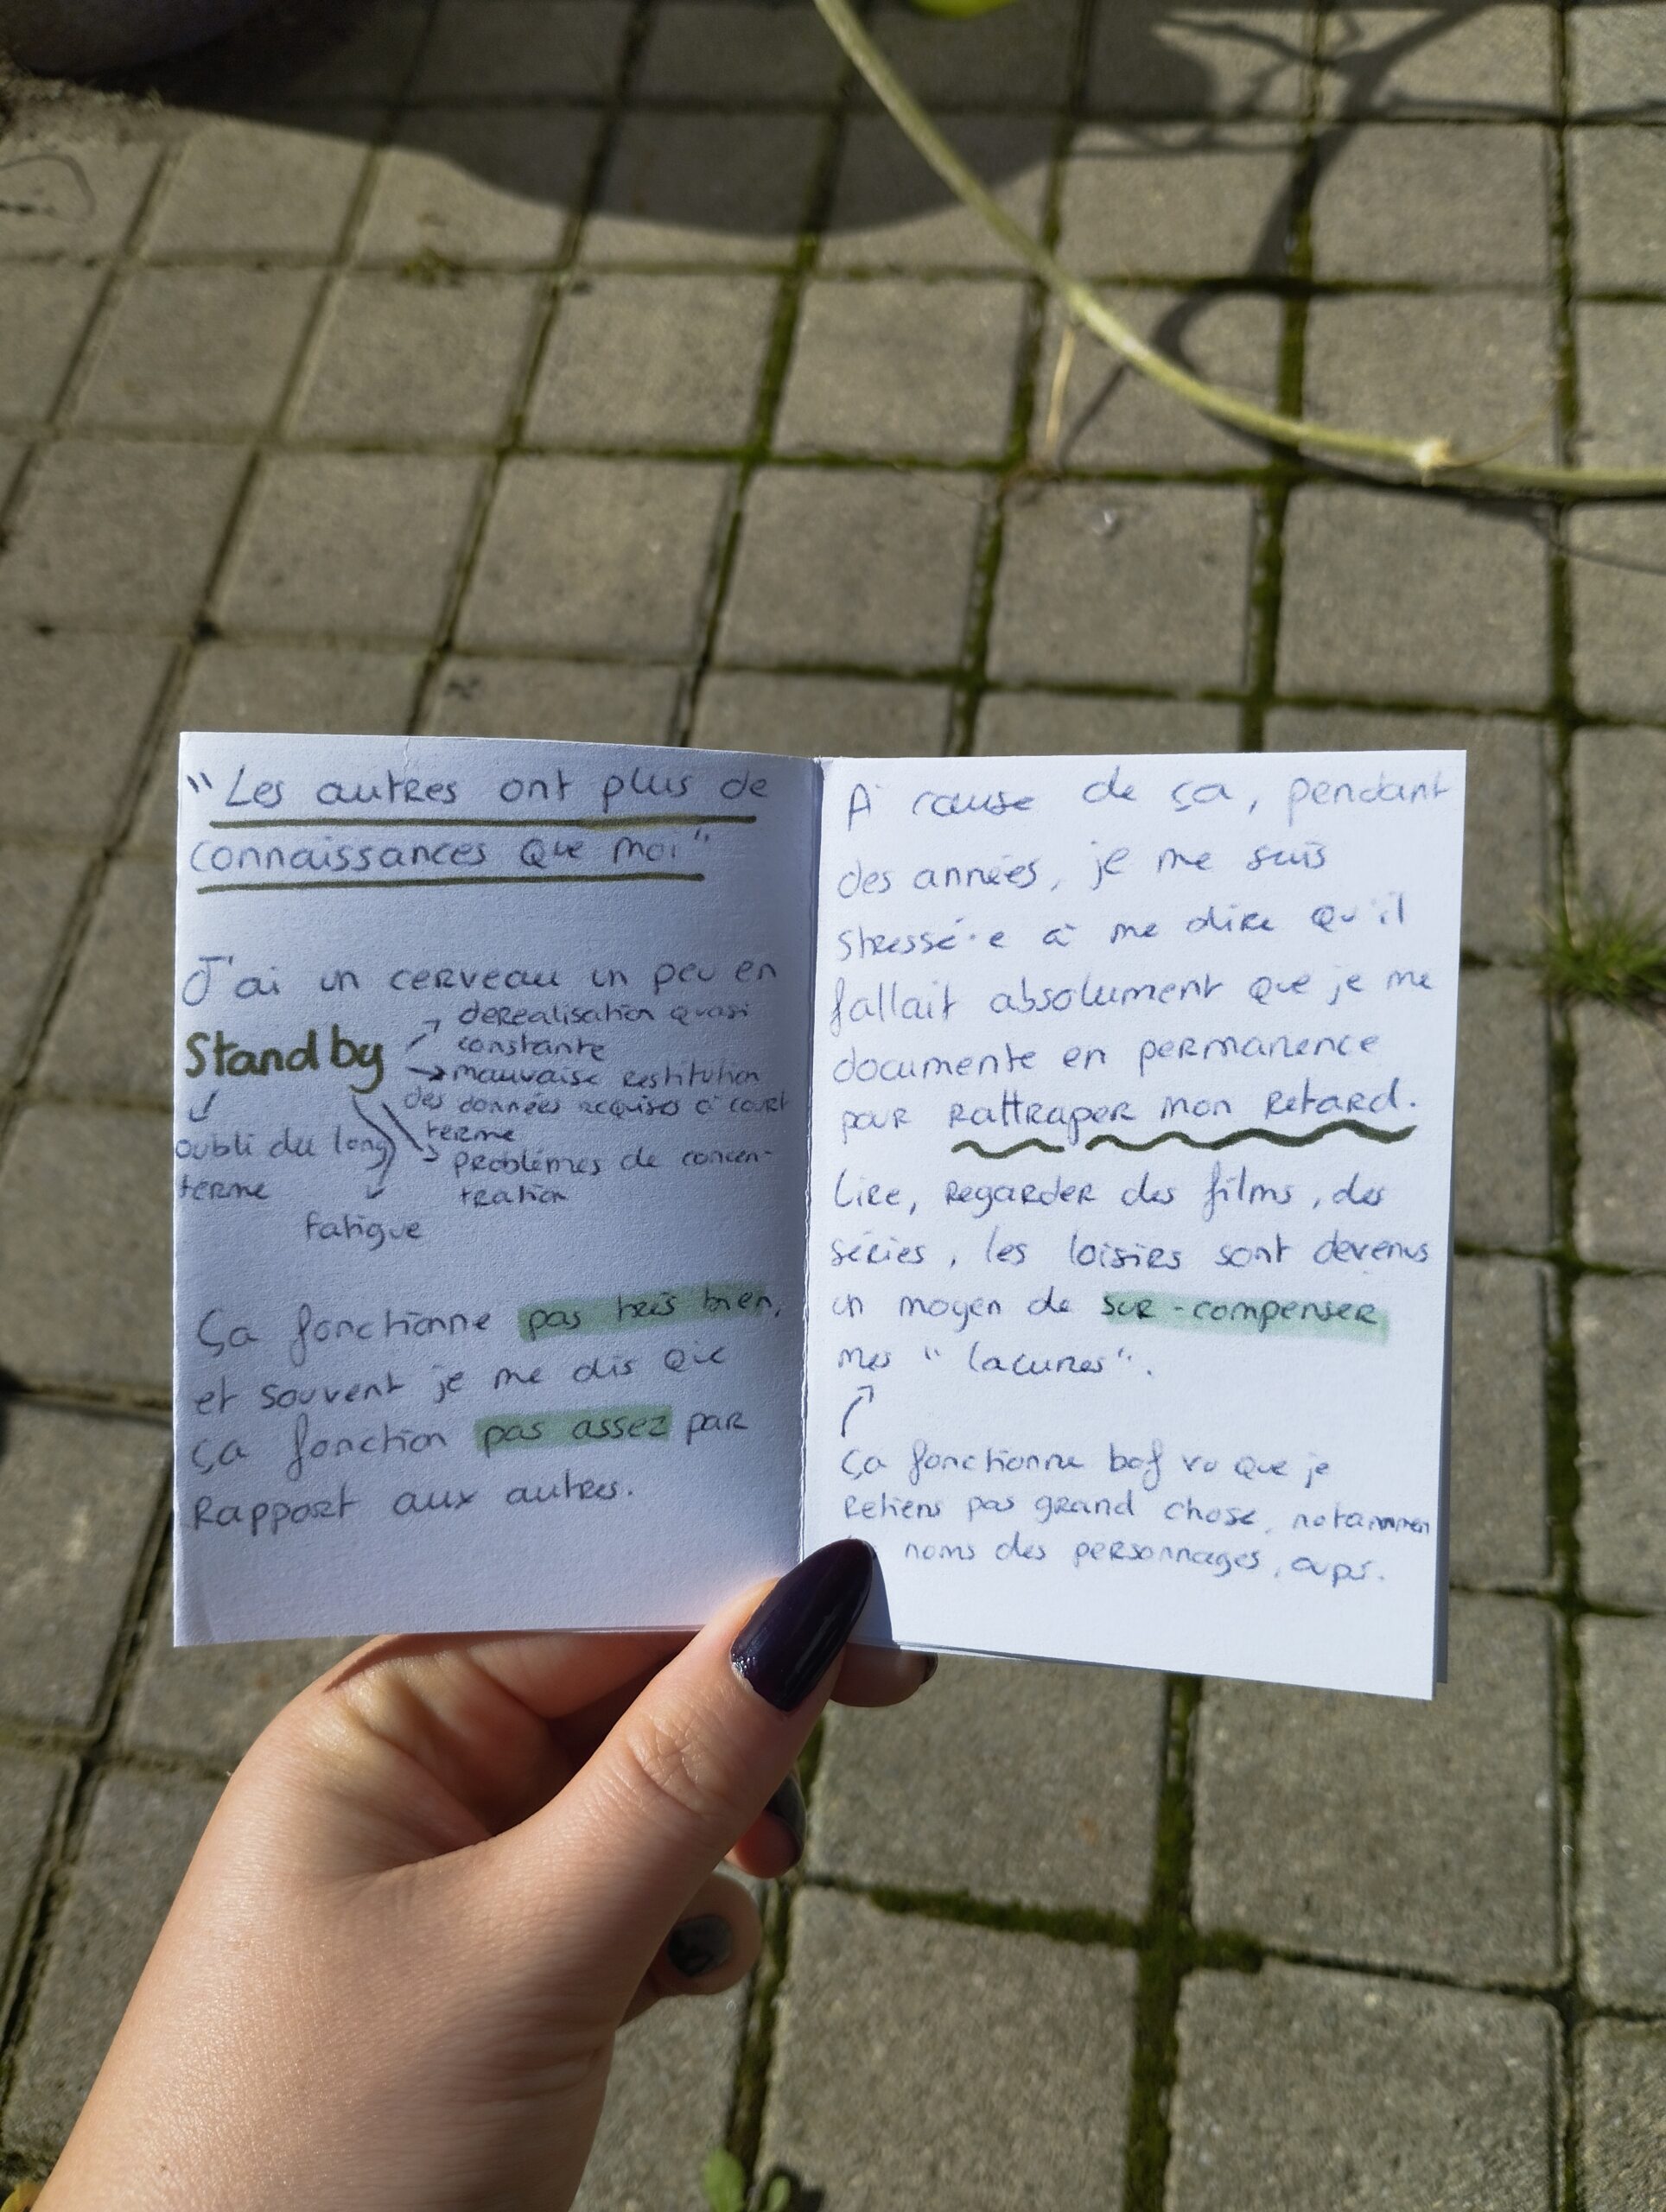 "Les autres ont plus de
connaissances que moi"
J'ai un cerveau un peu en
Standby
derealisation quasi
constante
mauvaise restitution
des données acquises à court
terme
problèmes de concen-
tration
oubli du long
terme
fatigue
Ça fonctionne pas très bien,
et souvent je me dis que
ça fonction pas assez par
rapport aux autres.
A cause de ça, pendant
des années, je me suis
stressé·e à me dire qu'il
fallait absolument que je me
documente en permanence
pour rattraper mon retard.
Lire, regarder des films, des
séries, les loisirs sont devenus
un moyen de sur-compenser
mes "lacunes".
Ça fonctionne bof vu que je
retiens pas grand chose, notammen
noms des personnages, oups.